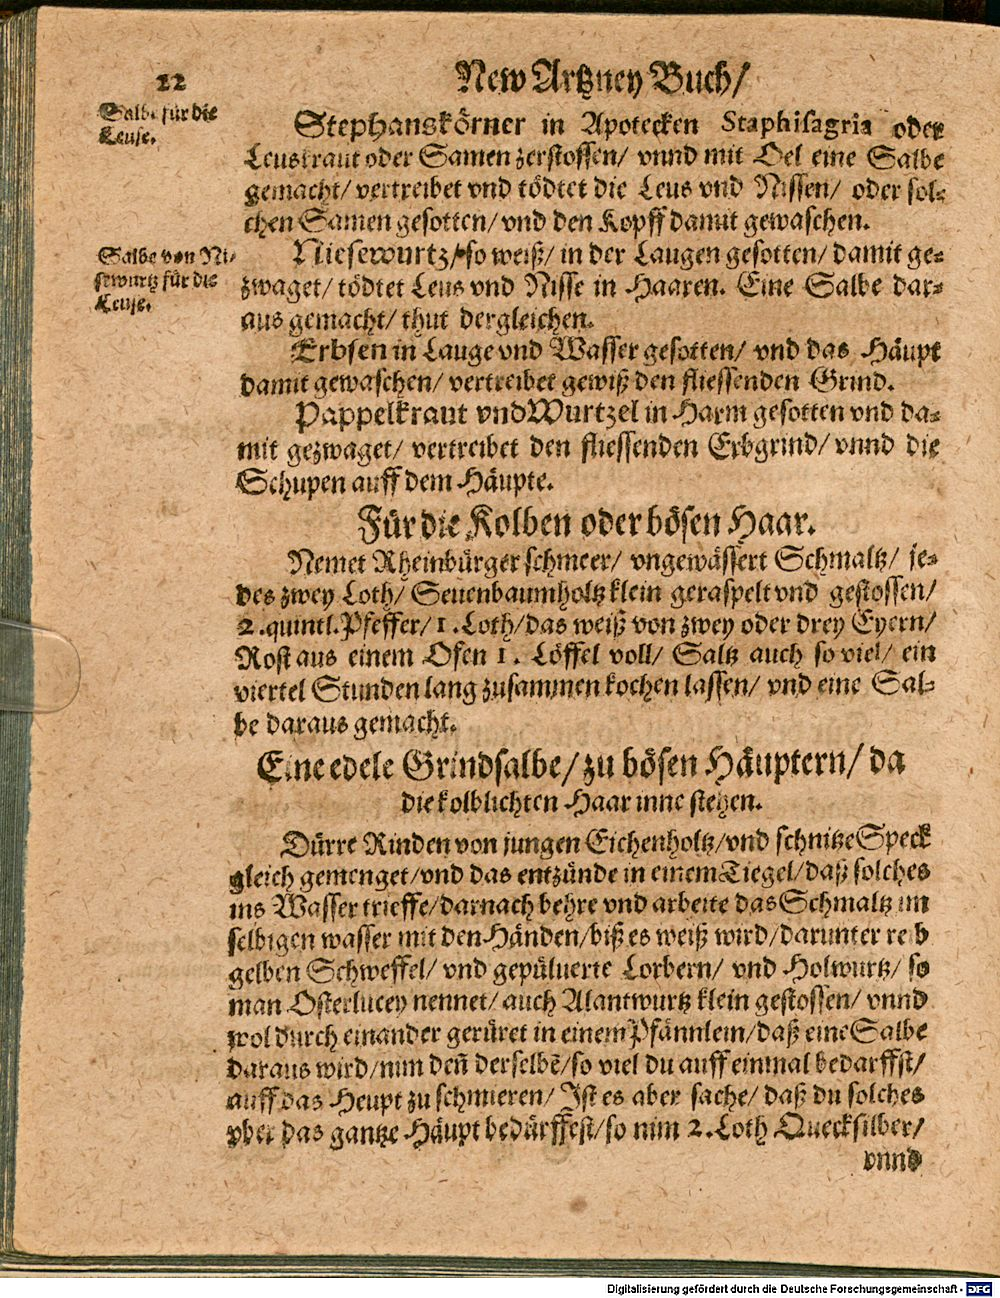 12
New Artzney Buch/
Salbe für die
Leuse.
Stephanskörner in Apotecken Staphisagria oder
Leuskraut oder Samen zerstossen/ vnnd mit Oel eine Salbe
gemacht/ vertreibet vnd tödtet die Leus vnd Nissen/ oder sol-
chen Samen gesotten/ vnd den Kopff damit gewaschen.
Salbe von Ni-
sewurtz für die
Leuse.
Niesewurtz/ so weiß/ in der Laugen gesotten/ damit ge-
zwaget/ tödtet Leus vnd Nisse in Haaren. Eine Salbe dar-
aus gemacht/ thut dergleichen.
Erbsen in Lauge vnd Wasser gesotten/ vnd das Häupt
damit gewaschen/ vertreibet gewiß den fliessenden Grind.
Pappelkraut vnd Wurtzel in Harm gesotten vnd da-
mit gezwaget/ vertreibet den fliessenden Erbgrind/ vnnd die
Schupen auff dem Häupte.
Für die Kolben oder bösen Haar.
Nemet Rheinbürger schmeer/ vngewässert Schmaltz/ je-
des zwey Loth/ Seuenbaumholtz klein geraspelt vnd gestossen/
2. quintl. Pfeffer/ 1. Loth/ das weiß von zwey oder drey Eyern/
Rost aus einem Ofen 1. Löffel voll/ Saltz auch so viel/ ein
viertel Stunden lang zusammen kochen lassen/ vnd eine Sal-
be daraus gemacht.
Eine edele Grindsalbe/ zu bösen Häuptern/ da
die kolblichten Haar inne stehen.
Dürre Rinden von jungen Eichenholtz/ vnd schnitze Speck
gleich gemenget/ vnd das entzünde in einem Tiegel/ daß solches
ins Wasser trieffe/ darnach behre vnd arbeite das Schmaltz im
selbigen wasser mit den Händen/ biß es weiß wird/ darunter reib
gelben Schweffel/ vnd gepüluerte Lorbern/ vnd Holwurtz/ so
man Osterlucey nennet/ auch Alantwurtz klein gestossen/ vnnd
wol durch einander gerüret in einem Pfännlein/ daß eine Salbe
daraus wird/ nim deñ derselbẽ/ so viel du auff einmal bedarffst/
auff das Heupt zu schmieren/ Ist es aber sache/ daß du solches
vber das gantze Häupt bedürffest/ so nim 2. Loth Quecksilber/
vnnd
Digitalisierung gefördert durch die Deutsche Forschungsgemeinschaft - DFG